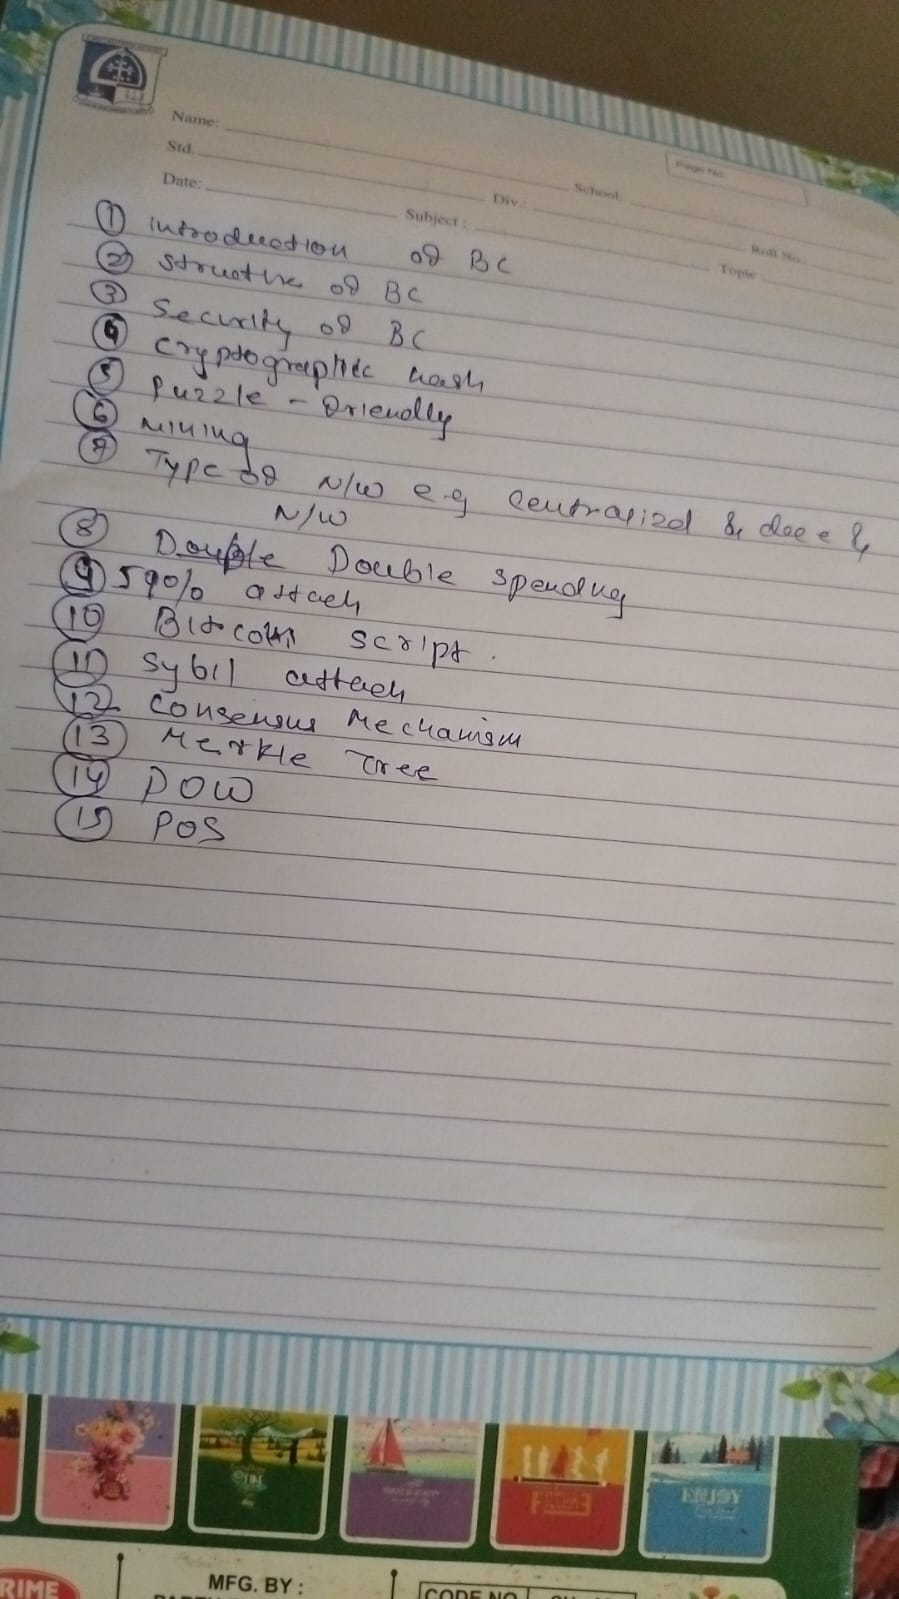 Name:
Page No.
Std.
School:
Date:
Div.:
Roll No.:
Subject :
Topic
① Introduction of BC
② Structure of BC
③ Security of BC
④ Cryptographic hash
⑤ Puzzle - friendly
⑥ Mining
⑦ Type of N/W e.g Centralized &
N/W
⑧ Double Double Spending
⑨ attack
⑩ Bitcoin script.
⑪ Sybil attack
⑫ Consensus Mechanism
⑬ Merkle Tree
⑭ POW
⑮ POS
ENJOY
RIME
MFG. BY :
CODE NO